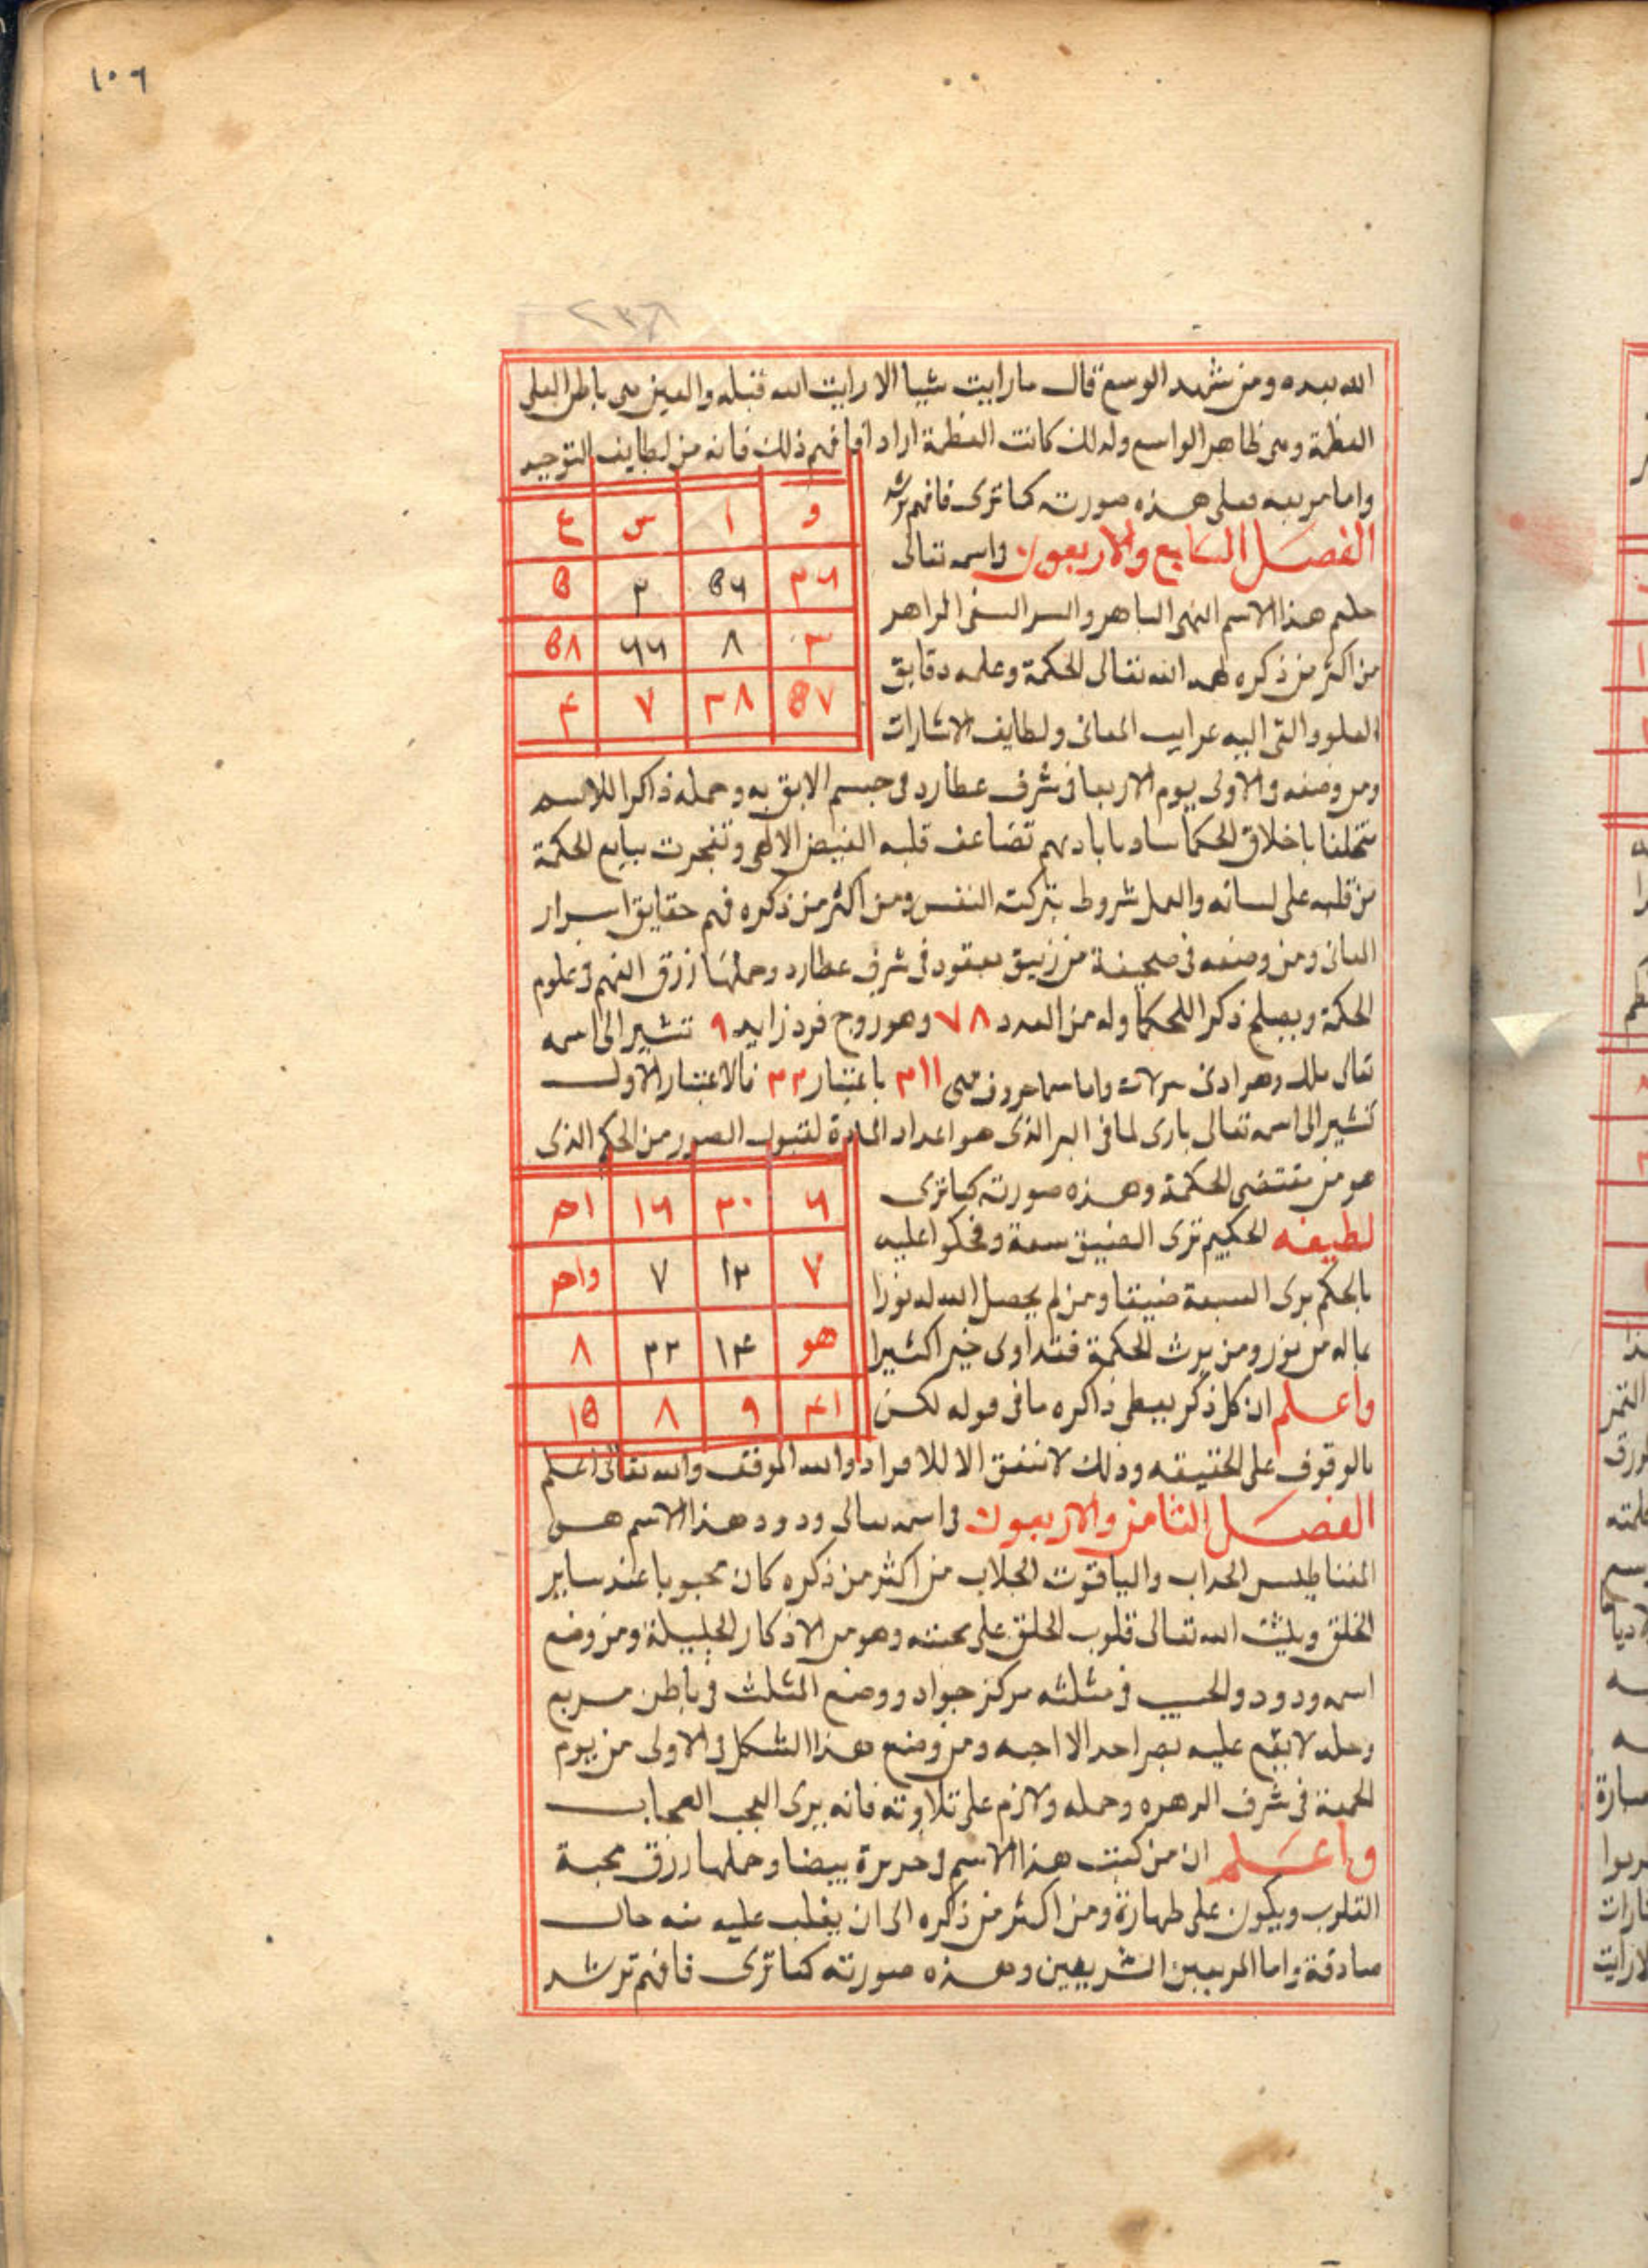 ١٠٦
٢٣٨
الله بعده ومن شهد الوسع قال ما رايت شيا الا رايت الله قبله والعين من باطن العلى
العظمة ومن ظاهر الواسع ولذلك كانت العظمة ازارا فافهم ذلك فانه من لطايف التوحيد
واما مربعه فعلى هذه صورته كما ترى فافهم ترشد
و ا س ع
الفصل السابع والاربعون في اسمه تعالى
٣٦ ٥٦ ٣ ٥
حكيم هذا الاسم البهى الباهر والسر السنى الزاهر
٣ ٨ ٦٦ ٥٨
من اكثر من ذكره الله تعالى الحكمة وعلمه دقايق
٥٧ ٣٨ ٧ ٤
العلوم والقى اليه غرايب المعانى ولطايف الاشارات
ومن وضعه في الاولى يوم الاربعا في شرف عطارد في جسم لايق به وحمله ذاكرا للاسم
متخلقا باخلاق الحكما بادابهم تضاعف قلبه الفيض الالهى وتفجرت ينابيع الحكمة
من قلبه على لسانه والعمل شروط بتزكية النفس ومن اكثر من ذكره فهم حقايق اسرار
المعانى ومن وضعه في صحيفة من زيبق معقود في شرف عطارد وحملها رزق الفهم في علوم
الحكمة ويصلح ذكرا للحكما وله من العدد ٧٨ وهو زوج فرد زايد ٩ تشير الى اسمه
تعالى ملك واما حروف فهى ٣١١ باعتبار ٣٣ فالاعتبار الاول
تشير الى اسمه تعالى بارى لما في البر الذى هو اعداد المادة لقبول الصور من الحكم الذى
هو من مقتضى الحكمة وهذه صورته كما ترى
٦ ٣٠ ١٦
لطيفه الحكيم ترى الضيق سعة
٧ ١٣ ٧ واحر
بالحكم يرى السعة ضيقا ومن لم يجعل الله له نورا
هو ١٤ ٣٣ ٨
فما له من نور ومن يرث الحكمة فقد اوتى خيرا كثيرا
٤١ ٩ ٨ ١٥
واعلم ان كل ذكر يعطى ذاكره ما في قوله لكن
بالوقوف على الحقيقه وذلك لا تتفق الا للافراد والله الموفق والله تعالى اعلم
الفصل الثامن والاربعون في اسمه تعالى ودود هذا الاسم هو
المغناطيس الجداب والياقوت الجلاب من اكثر من ذكره كان محبوبا عند ساير
الخلق ويثبت الله تعالى قلوب الخلق على محبته وهو من الاذكار الجليلة ومن وضع
اسمه ودود والحبيب في مثلثه مركز جواد ووضع المثلث في باطن مربع
وحمله لا يقع عليه بصر احد الا احبه ومن وضع هذا الشكل في الاولى من يوم
الجمعة في شرف الزهره وحمله ولازم على تلاوته فانه يرى العجب العجاب
واعلم ان من كتب هذا الاسم في حريرة بيضا وحملها رزق محبة
القلوب ويكون على طهارة ومن اكثر من ذكره الى ان يغلب عليه منه حال
صادقة واما المربعين الشريفين وهذه صورته كما ترى فافهم ترشد